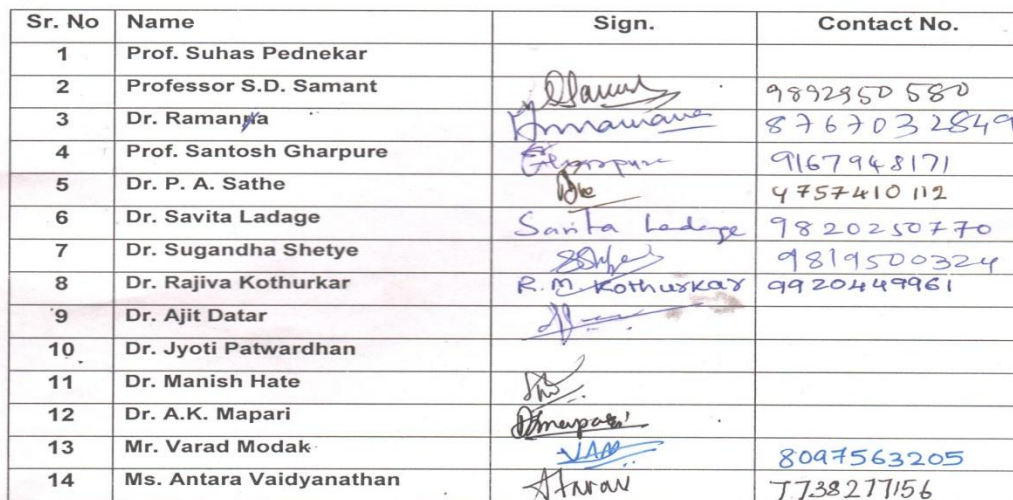 Sr. No Name Sign. Contact No.
1 Prof. Suhas Pednekar
2 Professor S.D. Samant 9892950 580
3 Dr. Ramanna 8767032849
4 Prof. Santosh Gharpure Gharpure 9167948171
5 Dr. P. A. Sathe 9757410112
6 Dr. Savita Ladage Savita Ladage 9820250770
7 Dr. Sugandha Shetye 9819500324
8 Dr. Rajiva Kothurkar R.M. Kothurkar 9920449961
9 Dr. Ajit Datar
10 Dr. Jyoti Patwardhan
11 Dr. Manish Hate
12 Dr. A.K. Mapari
13 Mr. Varad Modak 8097563205
14 Ms. Antara Vaidyanathan 7738277156